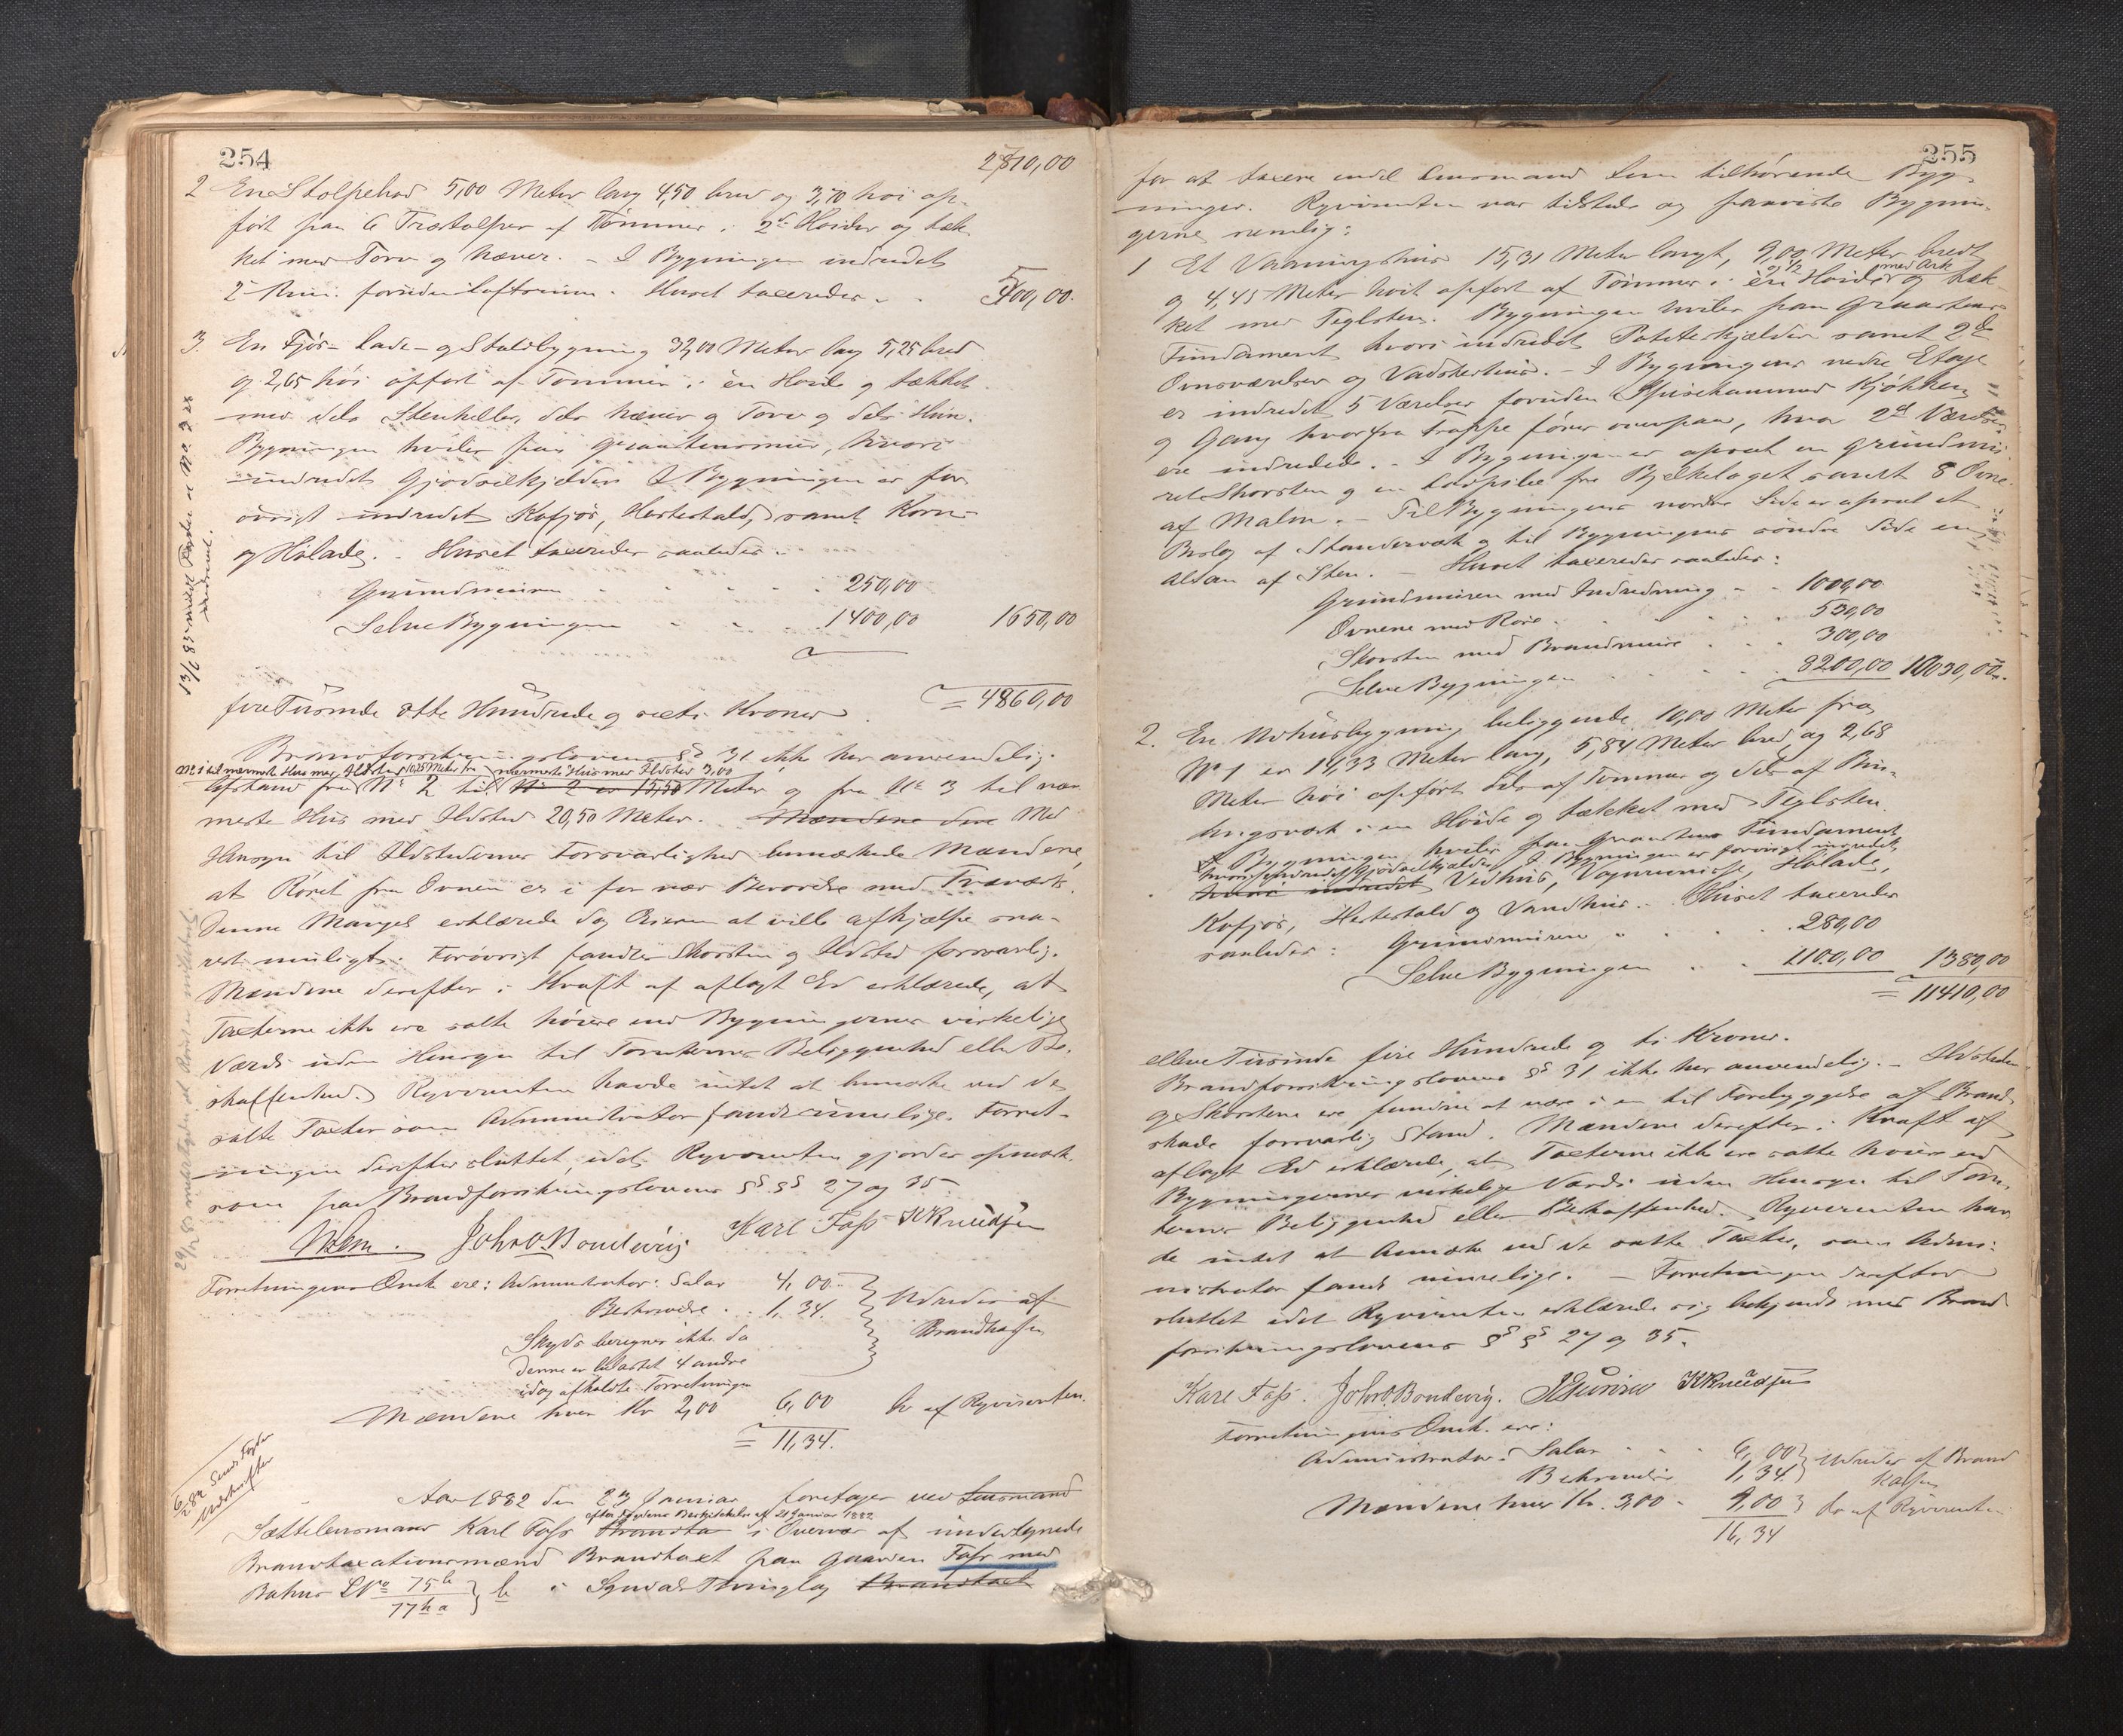 254
2810,00
2 En Stolpebod 5,00 Meter lang 4,50 bred og 3,70 høi op-
ført paa 6 Træstolper af Tømmer i 2de Høider og tæk-
ket med Torv og Næver. - I Bygningen indredet
2de Rum foruden Loftsrum. Huset taxeredes . . 400,00.
3. En Fjøs- Lade- og Staldbygning 32,00 Meter lang 5,25 bred
og 2,65 høi opført af Tømmer i én Høide og tækket
med dels Stenheller, dels Næver og Torv og dels
Bygningen hviler paa Graastensmur, hvori
indredet Gjødselkjelder. I Bygningen er for-
øvrigt indredet Kofjøs, Hestestald, samt Korn-
og Hølade. - Huset taxeredes saaledes:
Grundmuren . . . . 250,00
Selve Bygningen . . . 1400,00 1650,00
= 4860,00
fire Tusinde otte Hundrede og sexti Kroner.
Brandforsikringslovens § 31 ikke her anvendelig.
No 1 til nærmeste Hus med Ildsted 10,25 Meter fra nærmeste Hus med Ildsted 3,00
Afstand fra No 2 til No 2 er 13,50 Meter og fra No 3 til nær-
meste Hus med Ildsted 20,50 Meter. Mændene Med
Hensyn til Ildstedernes Forsvarlighed bemærkede Mændene,
at Røret fra Ovnen er i for nær Berørelse med Træværk.
Denne Mangel erklærede dog Eieren at ville afhjælpe sna-
rest muligt. Forøvrigt fandtes Skorsten og Ildsted forsvarlig.
Mændene derefter i Kraft af aflagt Ed erklærede, at
Taxterne ikke ere satte høiere end Bygningernes virkelige
Værdi uden Hensyn til Tomternes Beliggenhed eller Be-
skaffenhed. Rekvirenten havde intet at bemærke ved de
satte Taxter som Administrator fandt rimelige. Forret-
ningen derefter sluttet, idet Rekvirenten gjordes opmærk-
som paa Brandforsikringslovens §§ 27 og 35.
John O. Bondevig Karl Fass K Knudsen
Forretningens Omk. ere: Administrator: Salær 4,00
Beskrivelse . . 1,34. Udredes af
Brandkassen
Skyds beregnes ikke da
denne er belastet 4 andre
idag afholdte Forretninger
Mændene hver Kr 2,00 6,00 do af Rekvirenten.
= 11,34.
Aar 1882 den 23 Januar foretoges ved Lensmand
efter Fogdens Beskikkelse af 21 Januar 1882
Sættelensmand Karl Fass i Overvær af undertegnede
Brandtaxationsmænd Brandtaxt paa Gaarden Fass med
Bakus LNo 75b / 77ha } b i Thinglag Brandtaxt
255
for at taxere endel Lensmand tilhørende Byg-
ninger. Rekvirenten var tilstede og paaviste Bygnin-
gerne nemlig:
1 Et Vaaningshus 15,31 Meter langt, 9,00 Meter bredt
og 1/2 med Ark
og 4,45 Meter høit opført af Tømmer i én Høide og tæk-
ket med Teglsten. Bygningen hviler paa Graastens
Fundament hvori indredet Potetkjelder samt 2de
Ovnsværelser og Vadskerhus. - I Bygningens nedre Etage
er indredet 5 Værelser foruden Spisekammer Kjøkken
og Gang hvorfra Trappe fører ovenpaa, hvor 2de Værelser
ere indredede. - I Bygningen er opsat en grundmu-
ret Skorsten og en fra Bjelkelaget samt 8 Ovne
af Malm. - Til Bygningens nordre Side er opsat et
Bislag af Standerværk og til Bygningens søndre Side en
Altan af Sten. - Huset taxeredes saaledes:
Grundmuren med Indredning - . 1000,00
Ovnene med Rør . . . . 530,00
Skorsten med Brandmure . . . 300,00
Selve Bygningen . . . . 8200,00 10030,00.
2. En Udhusbygning beliggende 10,00 Meter fra
No 1 er 19,33 Meter lang, 5,84 Meter bred og 2,68
Meter høi opført dels af Tømmer og dels af Bin-
dingsværk i en Høide og tækket med Teglsten.
Bygningen hviler paa Graastens Fundament
hvori indredet Gjødselkjelder. I Bygningen er forøvrigt indredet
hvori indredet Vedhus, Vognremisse, Hølade,
Kofjøs, Hestestald og Vandhus. - Huset taxeredes
saaledes: Grundmuren . . . . 280,00
Selve Bygningen . . . 1100,00 1380,00
= 11410,00
elleve Tusinde fire Hundrede og ti Kroner.
Brandforsikringslovens § 31 ikke her anvendelig. - Ildsteder
og Skorstene ere fundne at være i en til Forebyggelse af Brand-
skade forsvarlig Stand. Mændene derefter i Kraft af
aflagt Ed erklærede, at Taxterne ikke ere satte høiere end
Bygningernes virkelige Værdi uden Hensyn til Tom-
ternes Beliggenhed eller Beskaffenhed. Rekvirenten hav-
de intet at bemærke ved de satte Taxter, som Admi-
nistrator fandt rimelige. - Forretningen derefter
sluttet idet Rekvirenten erklærede sig bekjendt med Brand-
forsikringslovens §§ 27 og 35.
Karl Fass. John O. Bondevig. K Knudsen
Forretningens Omk. ere:
Administrator: Salær . . . 6,00 Udredes af Brand
Beskrivelse 1,34 kassen
Mændene hver Kr. 3,00 - 9,00 do af Rekvirenten
16,34